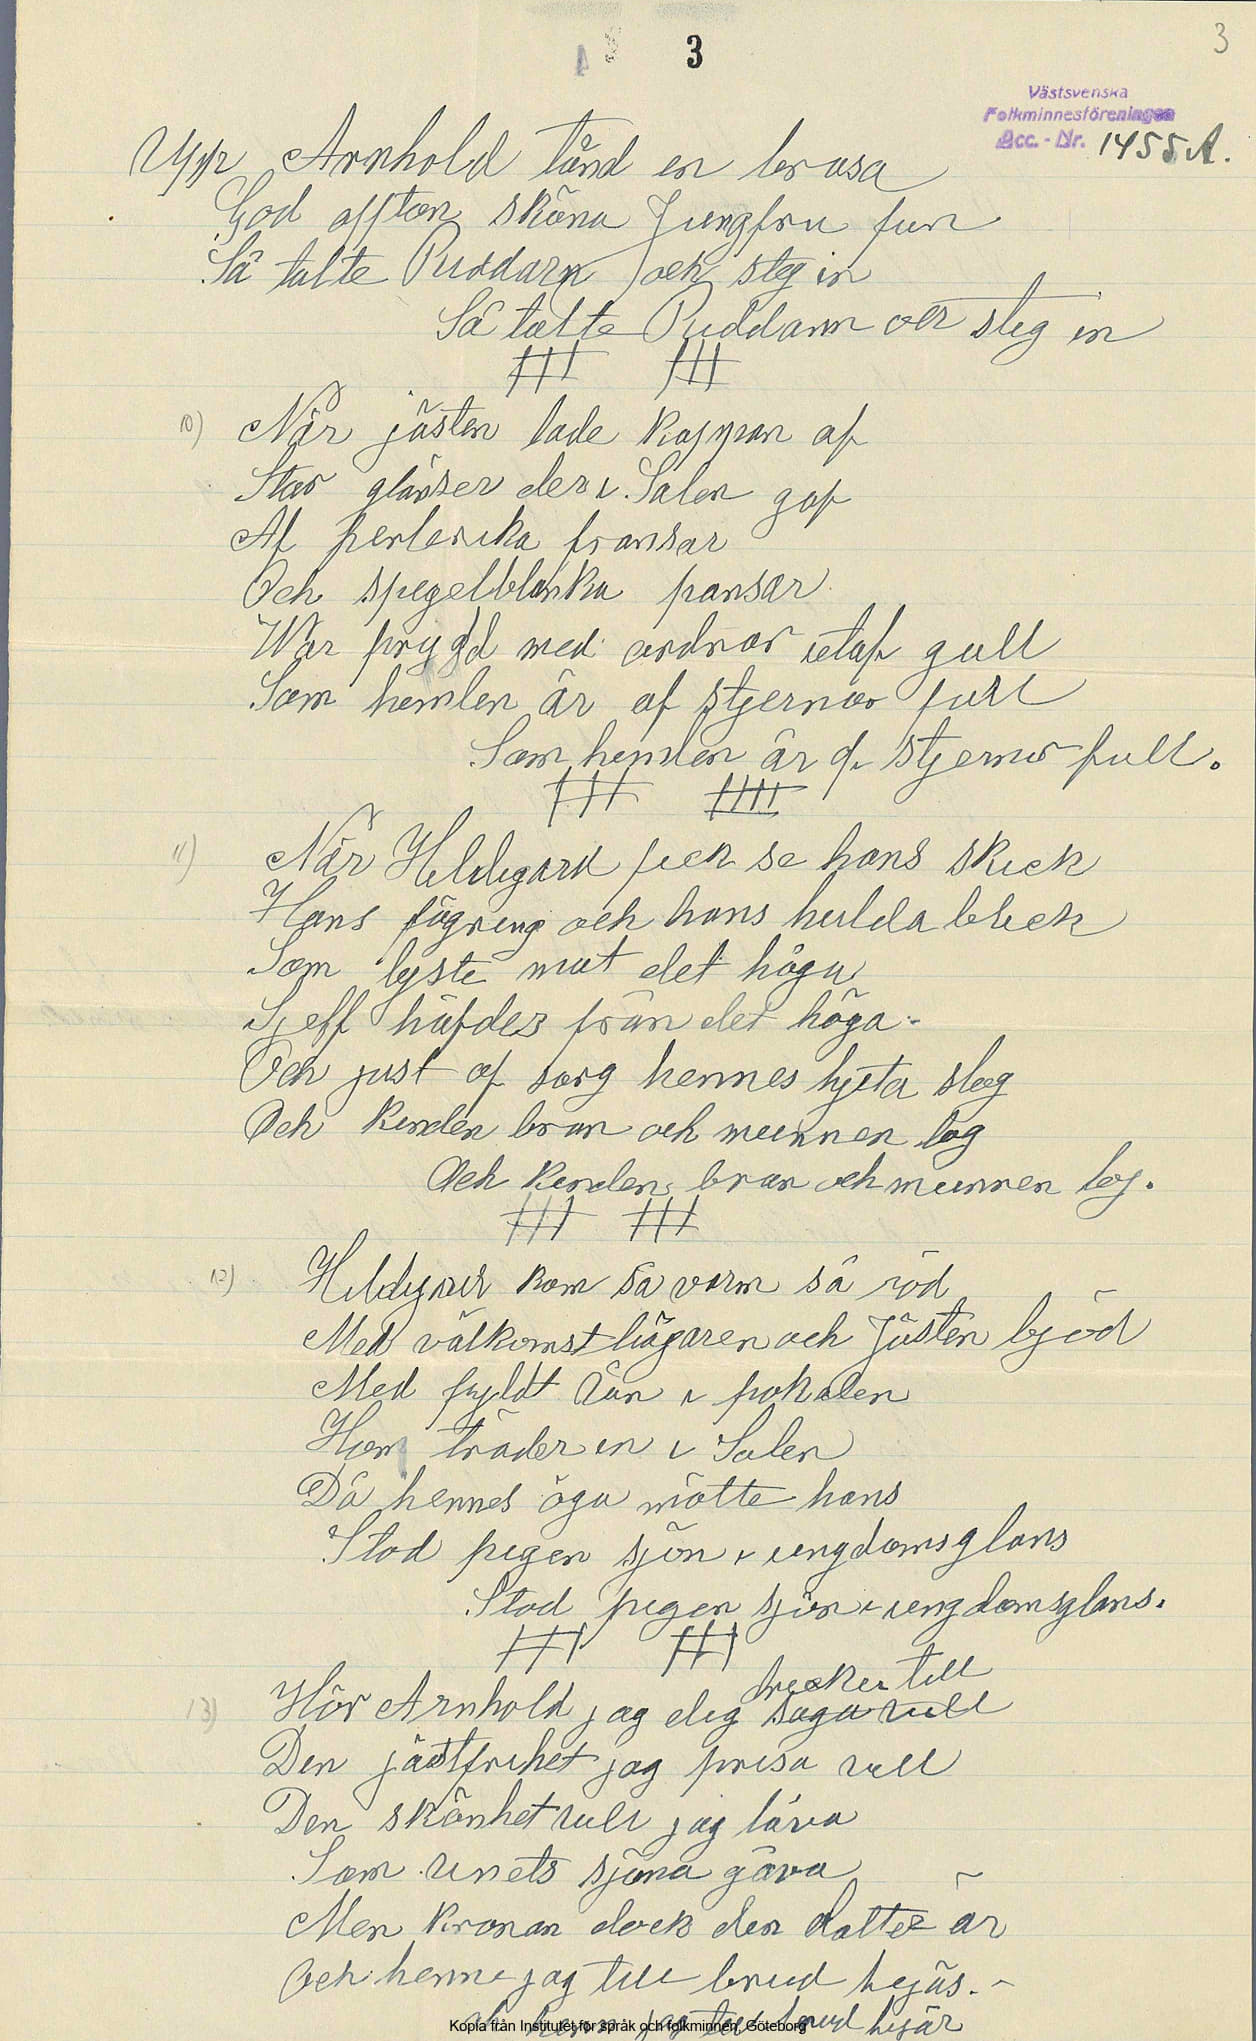 3
3
Västsvenska
Folkminnesföreningen
Acc.-Nr. 1455 A.
Upp Arnhold tänd en brasa
God afton sköna Jungfru fin
Så talte Riddarn och steg in
Så talte Riddarn och steg in
10) När jästen lade kappan af
Star glänser der i Salen gaf
Af perlerika fransar
Och spegelblanka pansar
War prydd med ordnar utaf gull
Som hemlen är af stjernor full
Som hemlen är af stjernor full.
11) När Hildegard fick se hans skick
Hans fägring och hans hulda blick
Som lyste mot det höga
Sjelf häfdes från det höga
Och just af sorg hennes hjeta slog
Och kinden bran och munnen log
Och kinden bran och munnen log.
12) Hildegard kom så varm så röd
Med välkomstbägaren och Jästen bjöd
Med fyldt vin i pokalen
Hon träder in i Salen
Då hennes öga mötte hans
Stod pigen sjön i ungdomsglans
Stod pigen sjön i ungdomsglans.
dricker till
13) Hör Arnhold jag dig saga vill
Den jästfrihet jag prisa vill
Den skönhet vill jag låva
Som vinets sjöna gåva
Men kronan dock den datter är
Och henne jag till brud bejäs.
Och henne jag till brud bejär
Kopia från Institutet för språk och folkminnen, Göteborg